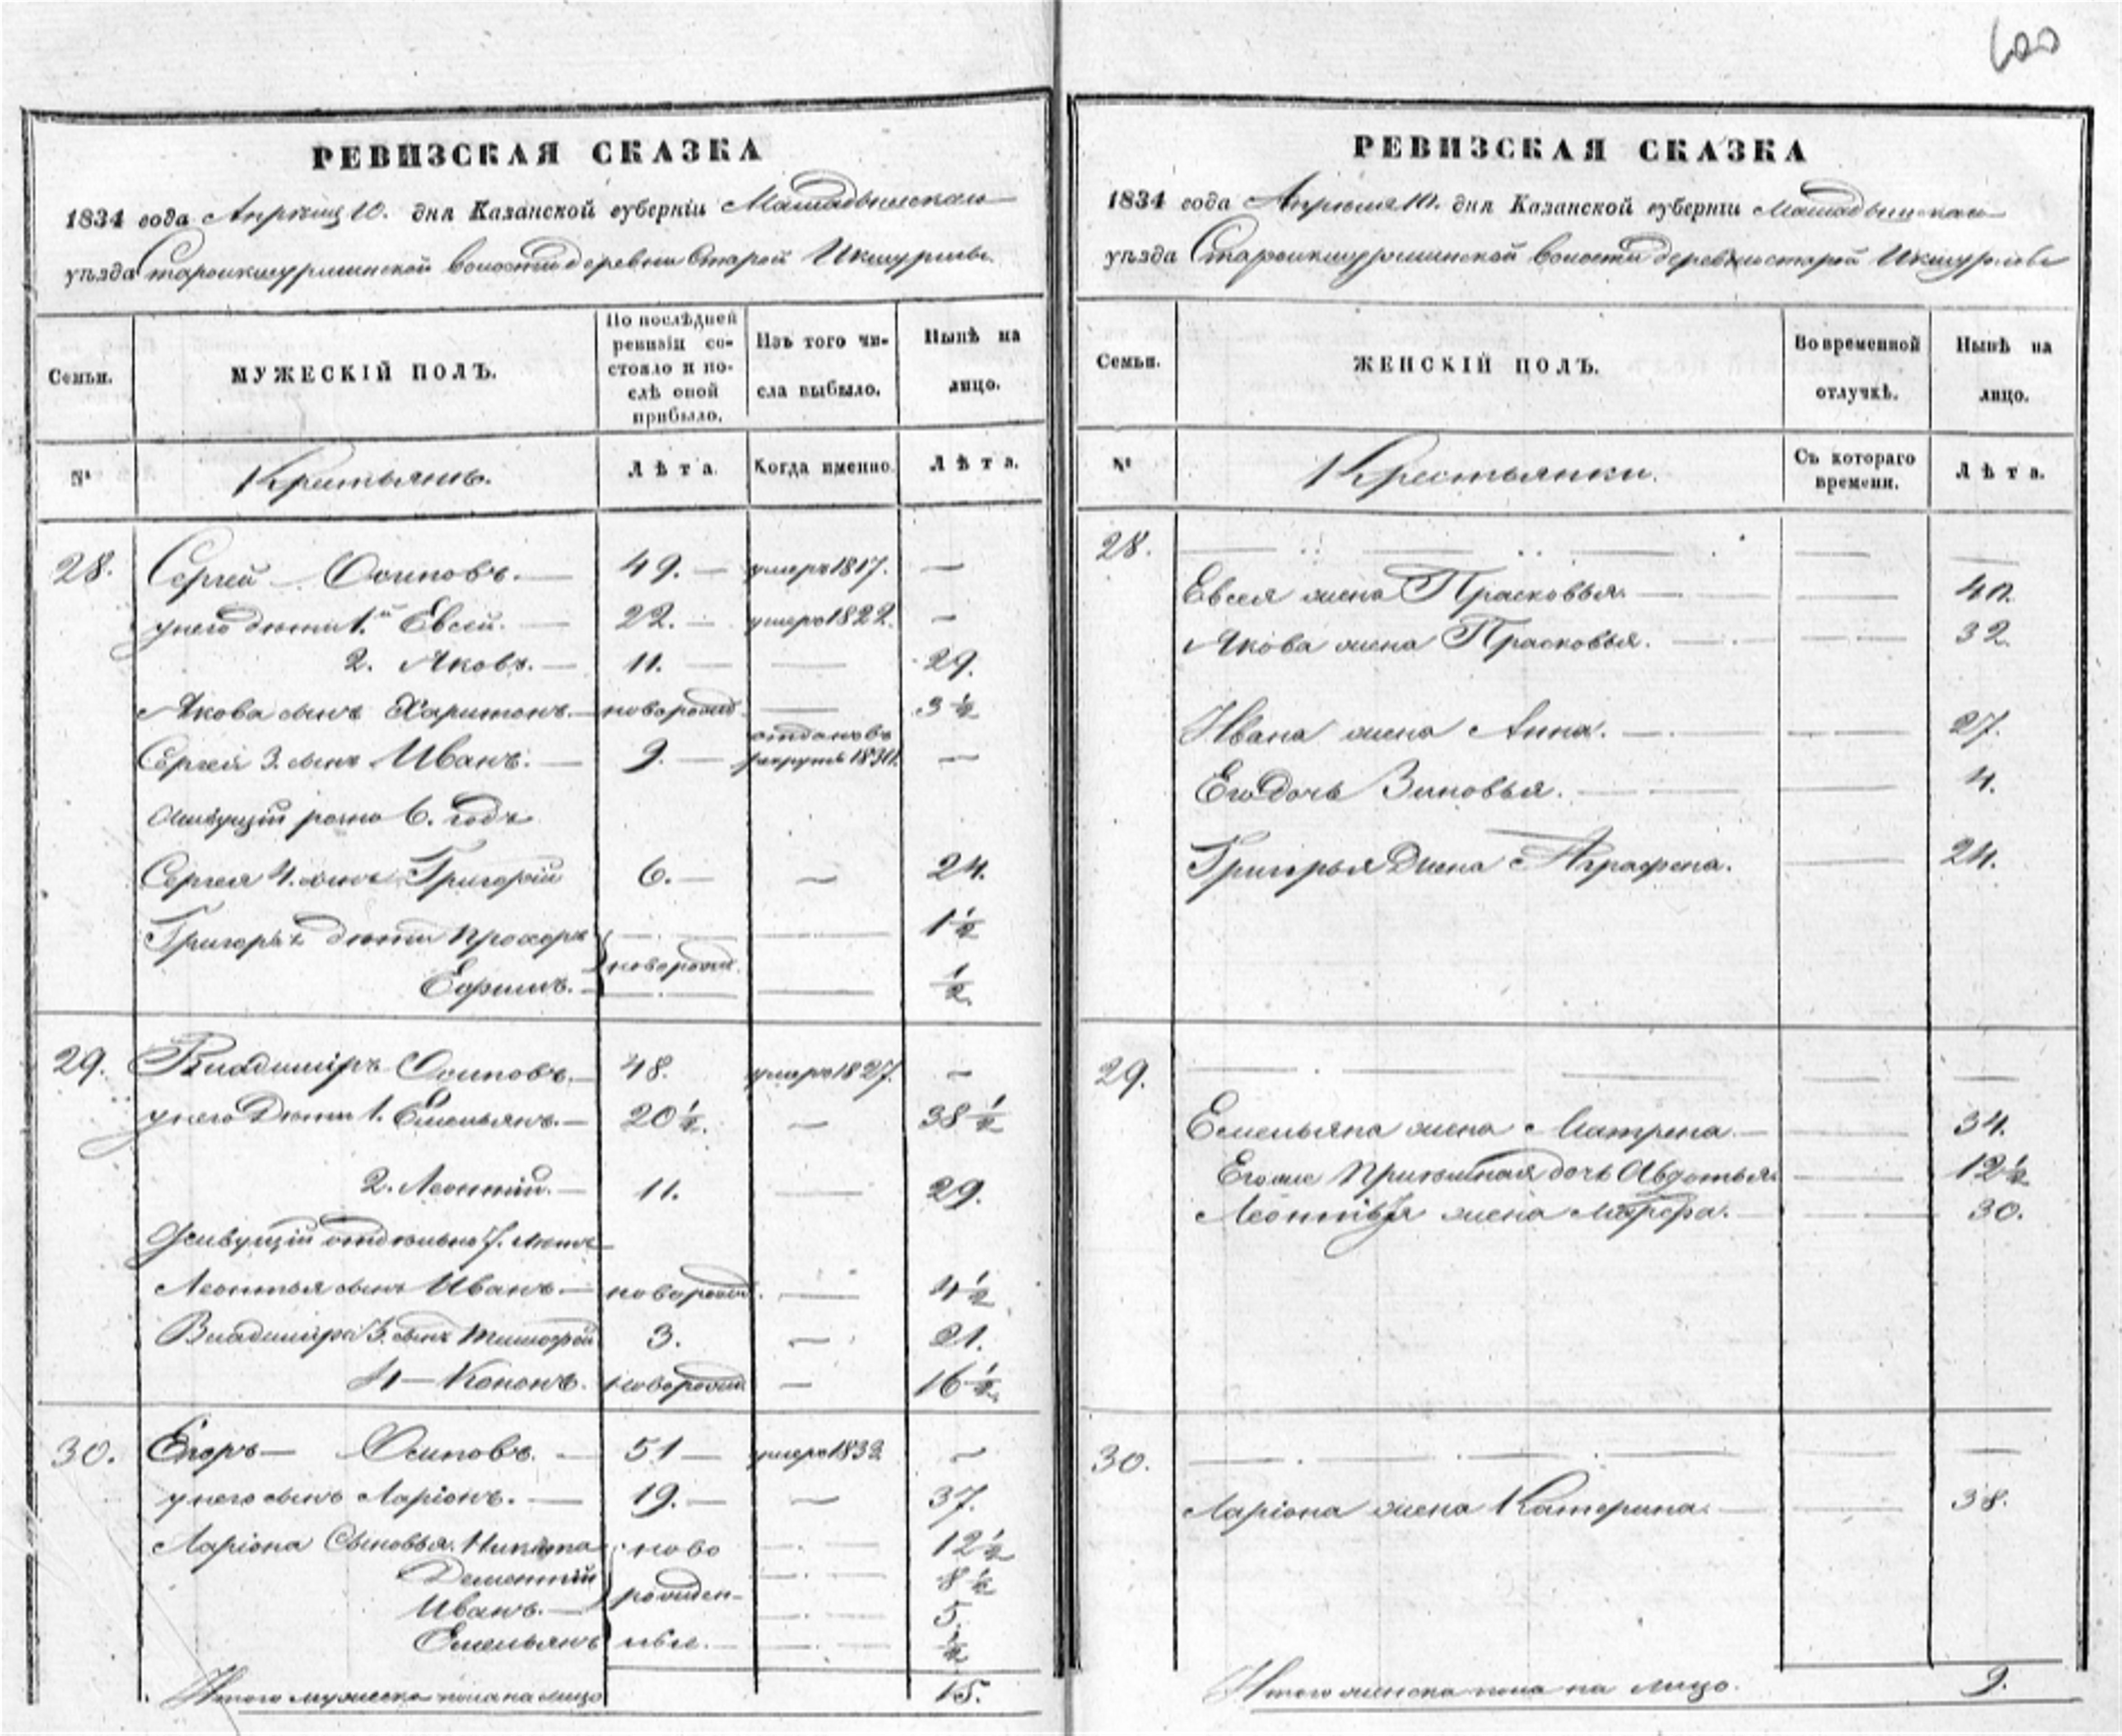 600
РЕВИЗСКАЯ СКАЗКА
1834 года Апреля 10. дня Казанской губерніи Мамадышскаго
уѣзда Староикшурминской волости деревни Старой Икшурмы
Семьи.
МУЖЕСКІЙ ПОЛЪ.
По послѣдней ревизіи состояло и послѣ оной прибыло.
Изъ того числа выбыло.
Нынѣ на лицо.
№
Крестьянъ.
Лѣта.
Когда именно.
Лѣта.
28. Сергей Осиповъ. 49. умеръ 1817. —
у него дѣти 1.й Евсей. 22. умеръ 1822. —
2. Яковъ. 11. — 29.
Якова сынъ Харитонъ. новорожд. — 3 ½
Сергея 3. сынъ Иванъ. 9. отданъ въ рекруты —
Живущій розно 6. годъ
Сергея 4. сынъ Григорій 6. — 24.
Григорья дѣти Прохоръ — 1 ½
новорожд.
Ефимъ. — ½
29. Владиміръ Осиповъ. 48. умеръ 1827. —
у него дѣти 1. Емельянъ. 20 ½. — 38 ½
2. Леонтій. 11. — 29.
Живущій отдѣльно 7. лѣтъ
Леонтья сынъ Иванъ. новорожд. — 4 ½
Владиміра 3. сынъ Тимофей 3. — 21.
4 — Кононъ. новорожд. — 16 ½.
30. Егоръ — Осиповъ. 51 — умеръ 1832 —
у него сынъ Ларіонъ. 19. — 37.
Ларіона Сыновья. Никита ново — 12 ½
Дементій — 8 ½
рожден-
Иванъ. — 5.
Емельянъ ные. — ½
Итого мужеска пола на лицо 15.
РЕВИЗСКАЯ СКАЗКА
1834 года Апреля 10. дня Казанской губерніи Мамадышскаго
уѣзда Староикшурминской волости деревни старой Икшурмы
Семьи.
ЖЕНСКІЙ ПОЛЪ.
Во временной отлучкѣ.
Нынѣ на лицо.
№
Крестьянки.
Съ котораго времени.
Лѣта.
28.
Евсея жена Прасковья. — 40.
Якова жена Прасковья. — 32.
Ивана жена Анна. — 27.
Его дочь Зиновья. — 4.
Григорья жена Аграфена. — 24.
29.
Емельяна жена Матрена. — 34.
Егоже Приемная дочь Авдотья. — 12 ½
Леонтья жена Марфа. — 30.
30.
Ларіона жена Катерина. — 38.
Итого женска пола на лицо. 9.